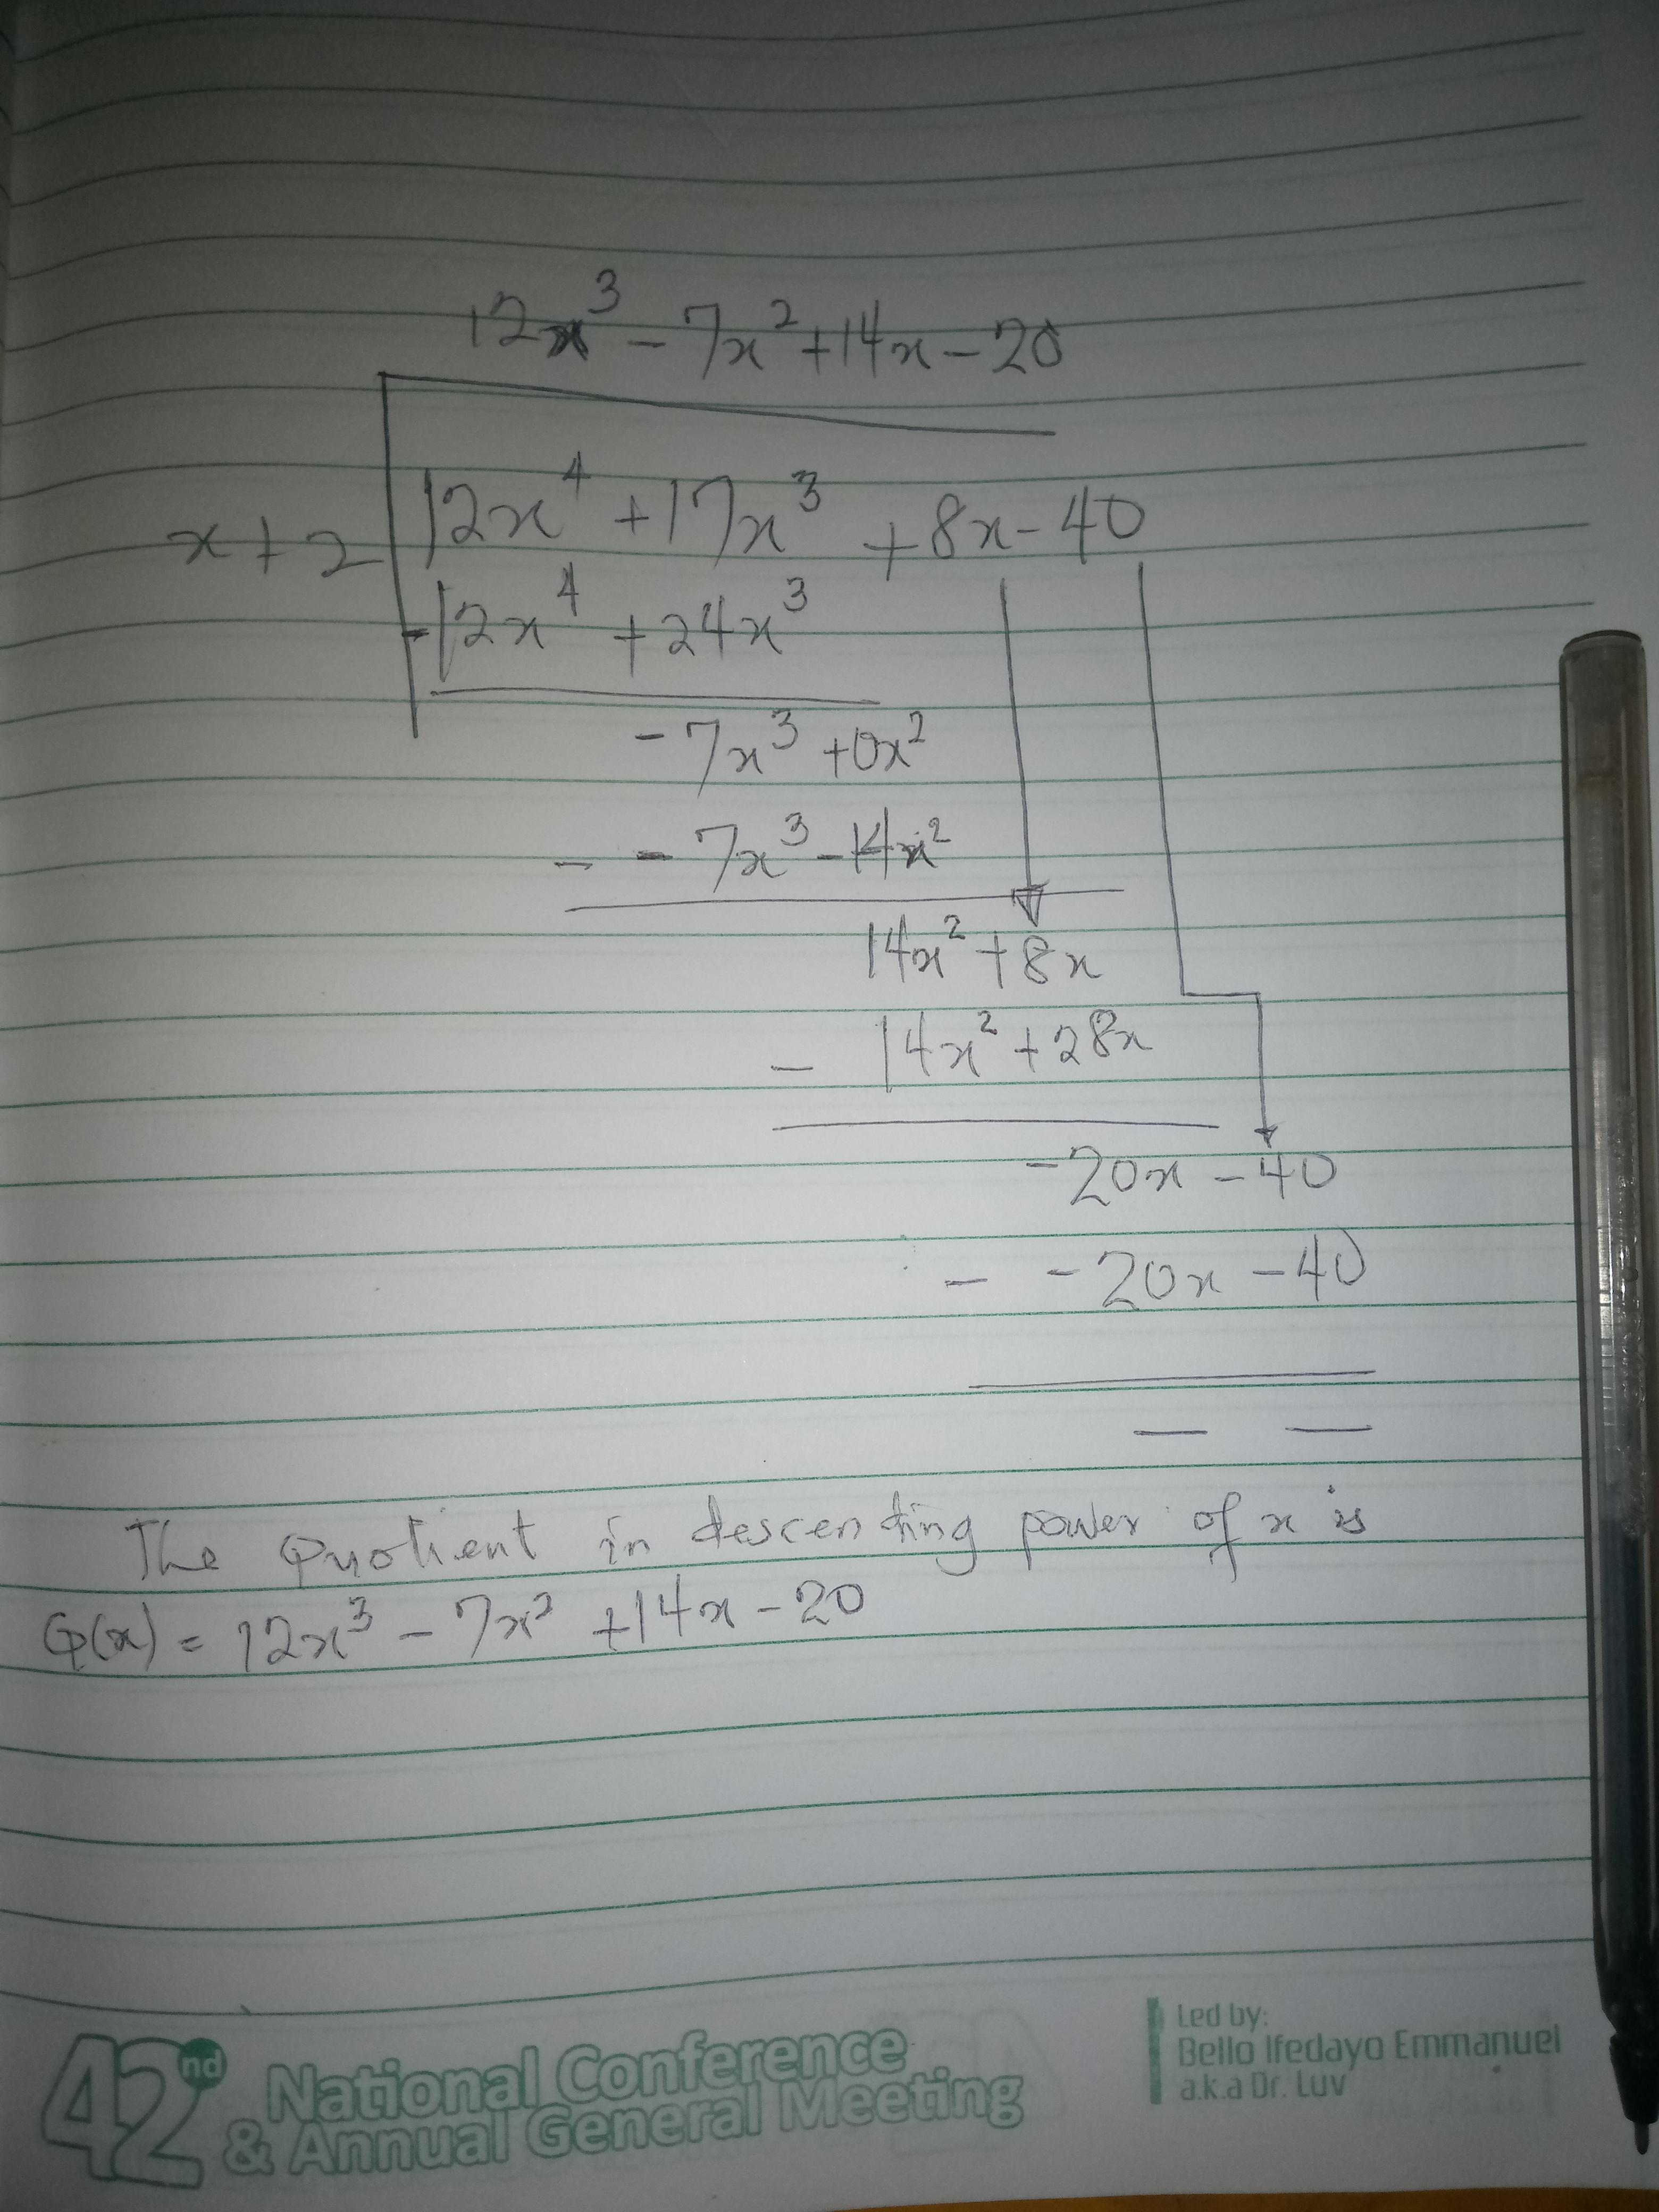 12x³ - 7x² + 14x - 20
x + 2 12x⁴ + 17x³ + 8x - 40
- 12x⁴ + 24x³
- 7x³ + 0x²
- - 7x³ - 14x²
14x² + 8x
- 14x² + 28x
- 20x - 40
- - 20x - 40
— —
The Quotient in descending power of x is
Q(x) = 12x³ - 7x² + 14x - 20
42nd National Conference
& Annual General Meeting
Led by:
Bello Ifedayo Emmanuel
a.k.a Dr. Luv